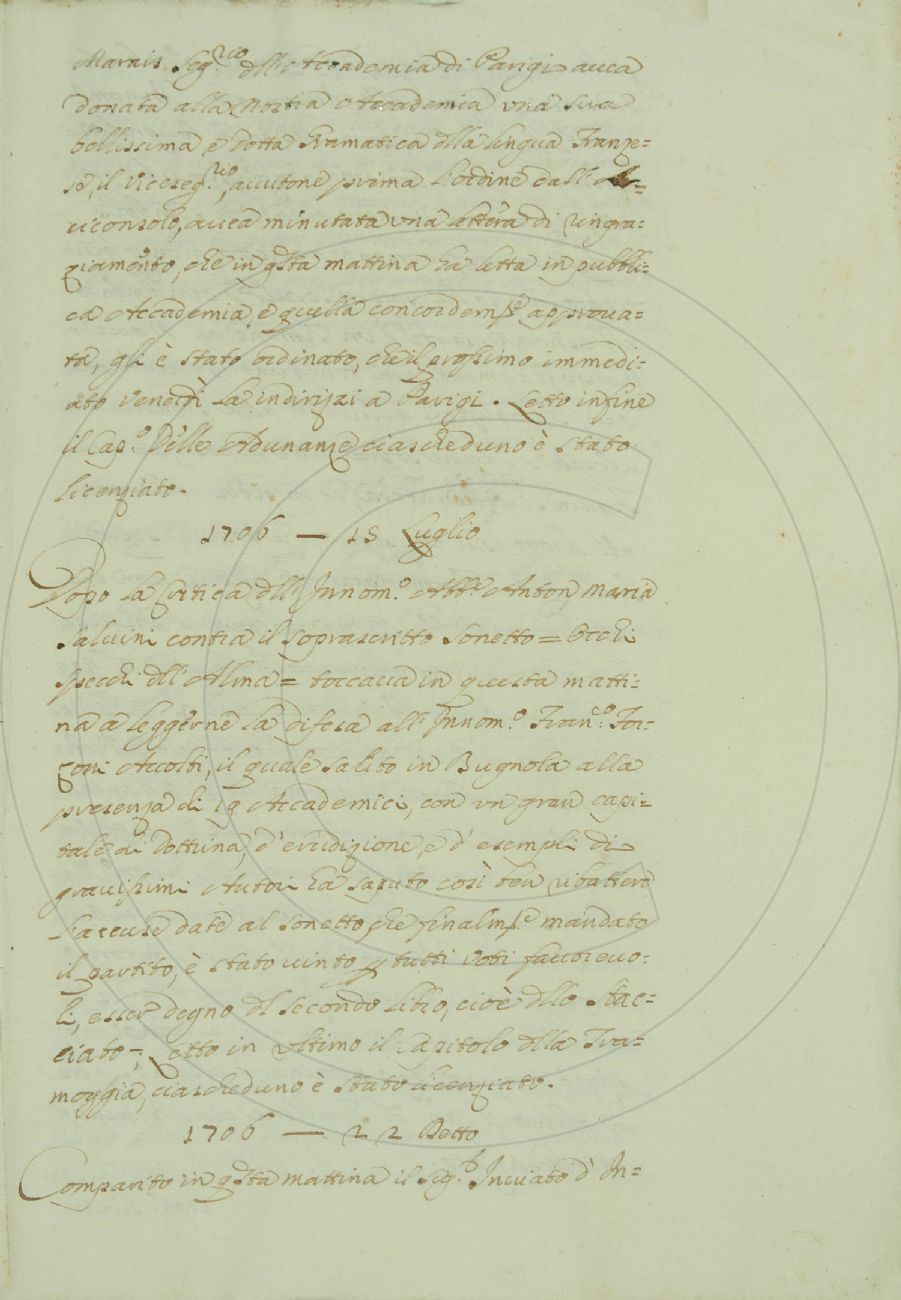 Marais Seg.rio dell'Accademia di Parigi avea
donata alla Nostra Accademia una sua
bellissima, e dotta Gramatica dlla lingua Franze=
se, il Viceseg.rio, avutone prima l'ordine dall' Ar=
ciconsolo, avea minutata una lettera di ringra=
ziamento, che in qsta mattina ha letta in pubbli=
ca Accademia, e quella concordemte approva=
ta, gli è stato ordinato, che il prossimo immedi=
ato Venerdì la indirizzi a Parigi. Letto infine
il Cap.o Delle Adunanze ciascheduno è stato
licenziato.
1706 — 15 Luglio
Dopo la Critica dll' Innom.o Abb.e Anton Maria
Salvini contra il soprascritto Sonetto = Occhi
specchi dll' Alma = toccava in questa matti=
na a leggerne la difesa all' Innom.o Franc.o For=
zoni Accolti, il quale salito in Bugnola alla
presenza di 19 Accademici, con un gran capi=
tale di Dottrina, d'erudizione, e d'esempli di
gravissimi Autori ha saputo così ben ributtere
l'accuse date al Sonetto che finalmte mandato
il partito, è stato vinto p tutti Voti favorevo=
li, esser degno dl secondo libro, cioè dllo Stac=
ciato=; Letto in ultimo il Capitolo dlla Tra=
moggia, ciascheduno è stato licenziato.
1706 — 22 Detto
Comparito in qsta mattina il Sig.r Inviato d' In=